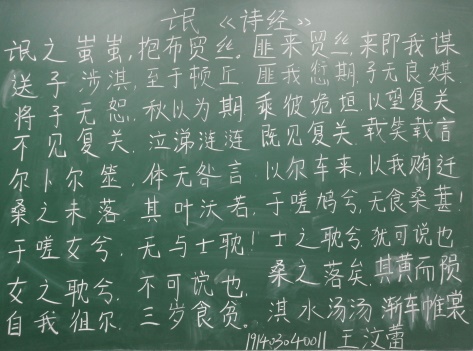 氓 《诗经》
氓之蚩蚩，抱布贸丝。匪来贸丝，来即我谋
送子涉淇，至于顿丘。匪我愆期，子无良媒
将子无怒，秋以为期 乘彼垝垣，以望复关
不见复关，泣涕涟涟 既见复关，载笑载言
尔卜尔筮，体无咎言 以尔车来，以我贿迁
桑之未落，其叶沃若，于嗟鸠兮，无食桑葚！
于嗟女兮，无与士耽！士之耽兮，犹可说也
女之耽兮，不可说也，桑之落矣，其黄而陨
自我徂尔，三岁食贫。淇水汤汤 渐车帷裳
191403040011 王汶蕾